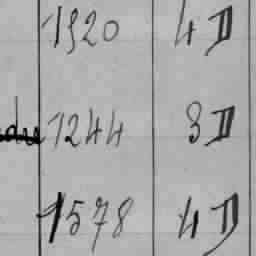 1920 4 D
1244 3 D
1578 4 D